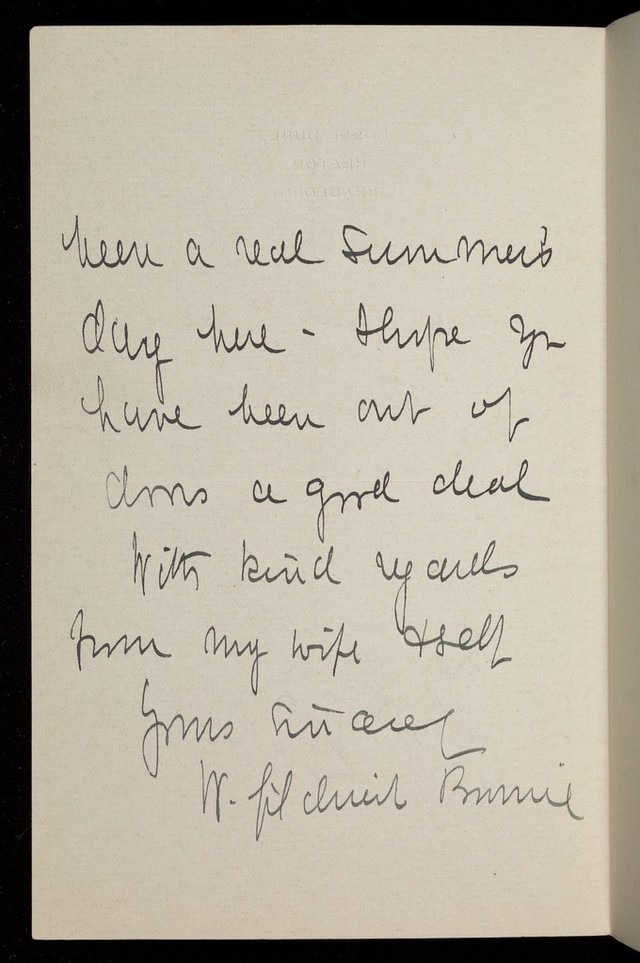 been a real Summer's
day here - I hope you
have been out of
doors a good deal
With kind regards
from my wife & self
Yours Sincerely
W.